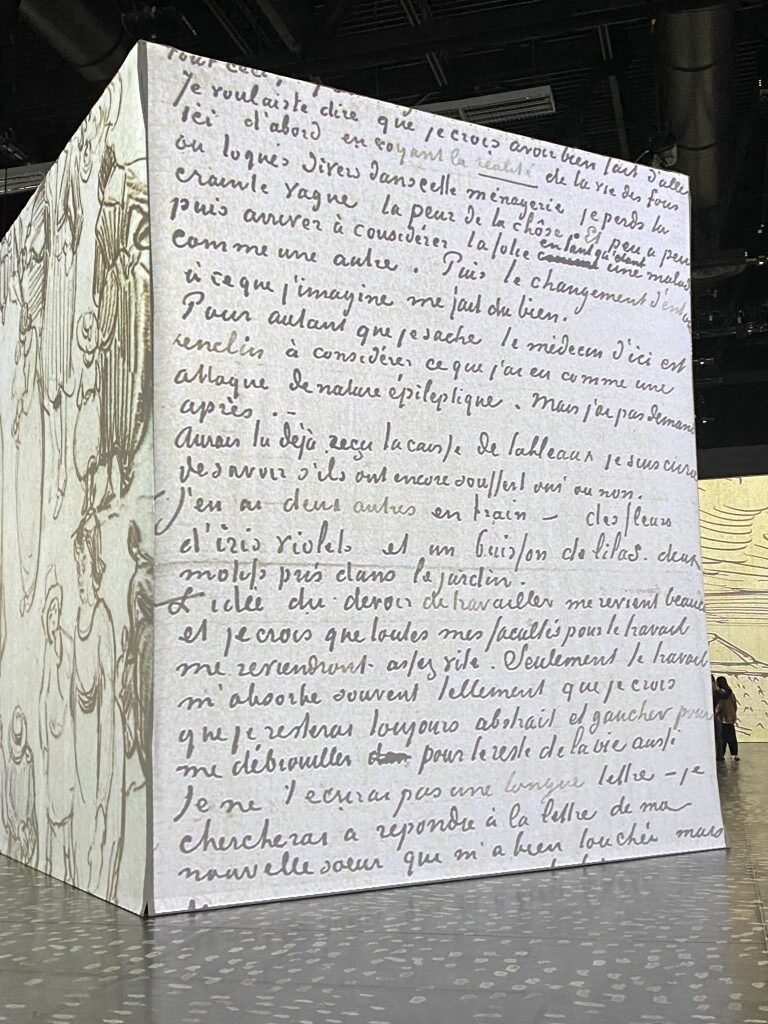 Tout ceci,
Je voulais te dire que je crois avoir bien fait d'aller
ici d'abord en voyant la réalité de la vie des fous
ou toqués divers dans cette ménagerie je perds la
crainte vague la peur de la chôse. Et peu a peu
puis arriver à considérer la folie en tant qu'étant une malad
comme une autre. Puis le changement d'ent
à ce que j'imagine me fait du bien.
Pour autant que je sache le médecin d'ici est
enclin à considérer ce que j'ai eu comme une
attaque de nature épileptique. Mais j'ai pas demand
après. -
Aurais tu déjà reçu la caisse de tableaux je suis curieu
de savoir s'ils ont encore souffert oui ou non.
J'en ai deux autres en train – des fleurs
d'iris violets et un buisson de lilas. deux
motifs pris dans le jardin.
L'idée du devoir de travailler me revient beauc
et je crois que toutes mes facultés pour le travail
me reviendront assez vite. Seulement le travail
m'absorbe souvent tellement que je crois
que je resterai toujours abstrait et gauche pour
me débrouiller pour le reste de la vie aussi
Je ne t'ecrirai pas une longue lettre – je
chercherai a repondre à la lettre de ma
nouvelle soeur que m'a bien touché mais